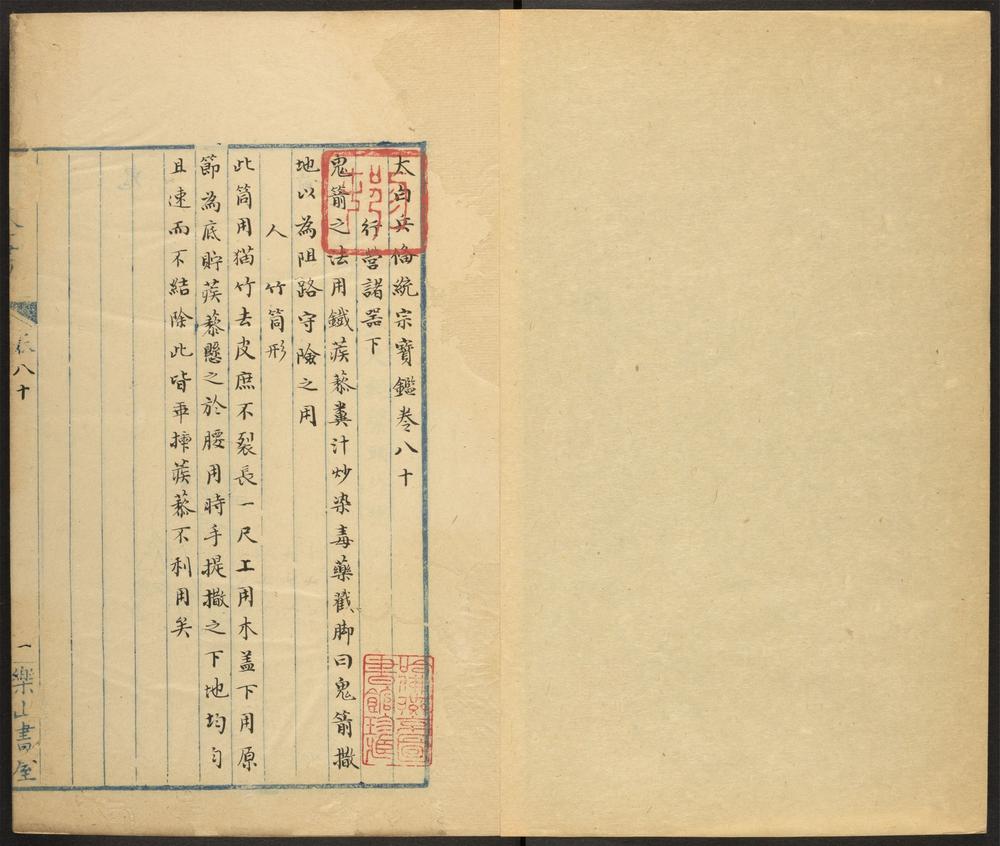 太白兵備統宗寶鑑卷八十
行營諸器下
鬼箭之法用鐵蒺藜糞汁炒染毒藥戳脚曰鬼箭撒
地以為阻路守險之用
人 竹筒形
此筒用猫竹去皮庶不裂長一尺工用木盖下用原
節為底貯蒺藜懸之於腰用時手提撒之下地均勻
且速而不結除此皆串揀蒺藜不利用矣
卷八十
一
樂山書屋
哈佛燕京圖書館珍藏